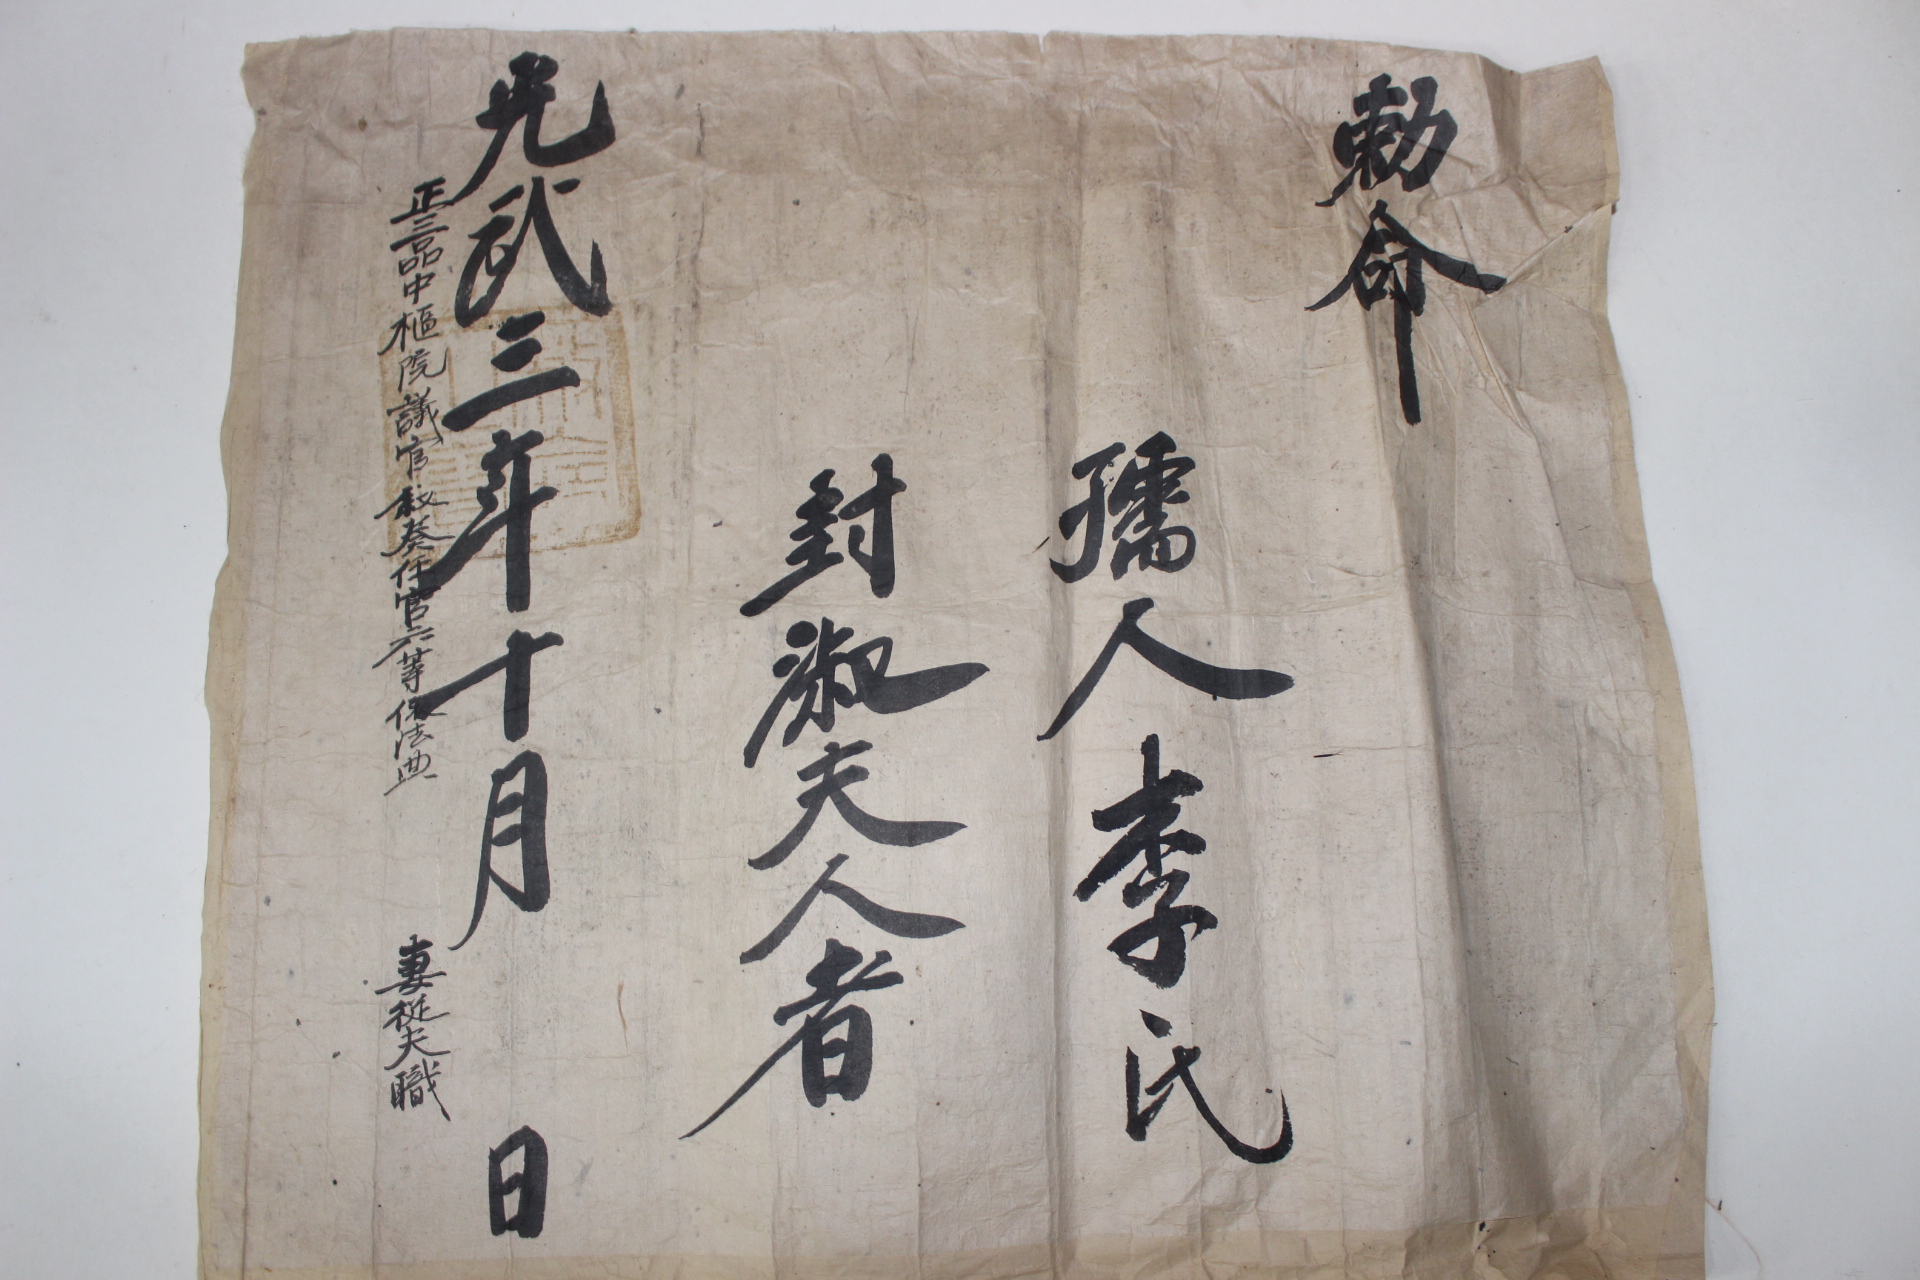 勅命
孺人李氏
封淑夫人者
光武三年十月 日
正三品中樞院議官敍奏任官六等保法典 妻從夫職